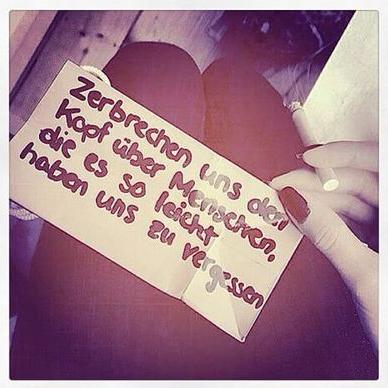 Zerbrechen uns den
Kopf über Menschen,
die es so leicht
haben uns zu vergessen